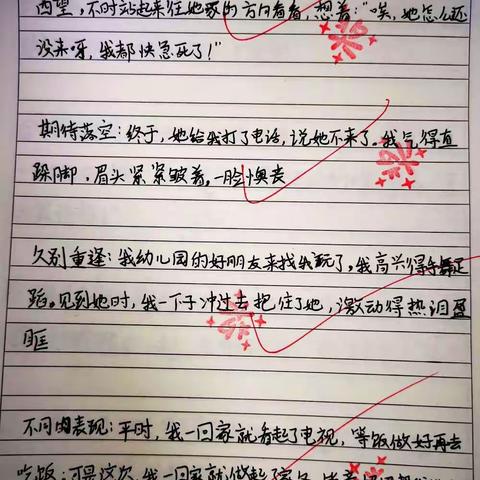 西望,不时站起来往她家的方向看看,想着:"唉,她怎么还
没来呀,我都快急死了!"
期待落空:终于,她给我打了电话,说她不来了。我气得直
跺脚,眉头紧紧皱着,一脸懊丧
久别重逢:我幼儿园的好朋友来找我玩了,我高兴得手舞足
蹈。见到她时,我一下子冲过去把住了她,激动得热泪盈
眶
不同的表现:平时,我一回家就看起了电视,等饭做好再去
吃饭;可是这次,我一回家就做起了家务